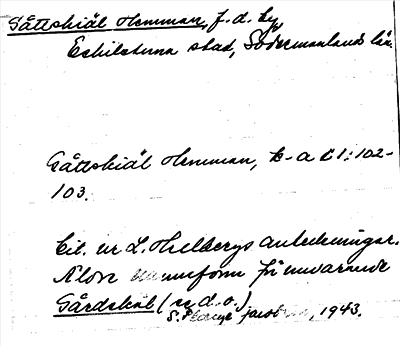 Gåttskiäl Hemman, f. d. by,
Eskilstuna stad, Södermanlands län.
Gåttskiäl Hemman, k-a 1:102-
103.
Cit. ur L. Hellbergs anteckningar.
Äldre namnform för nuvarande
Gårdskäl (se d. o.)
S. 1943.